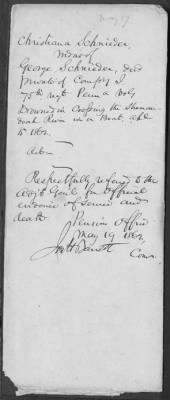 May 19
Christiana Schnieder,
Widow of
George Schnieder, decd
private of Comp'y I
75th regt Penna Vols
Drowned in Crossing the Shenan
doah River in a Boat, Apl
15 1862.
Respectfully referred to the
Adj't Genl. for Official
evidence of service and
death.
Pension Office
May 19 1862,
Jos H Barrett
Comr.